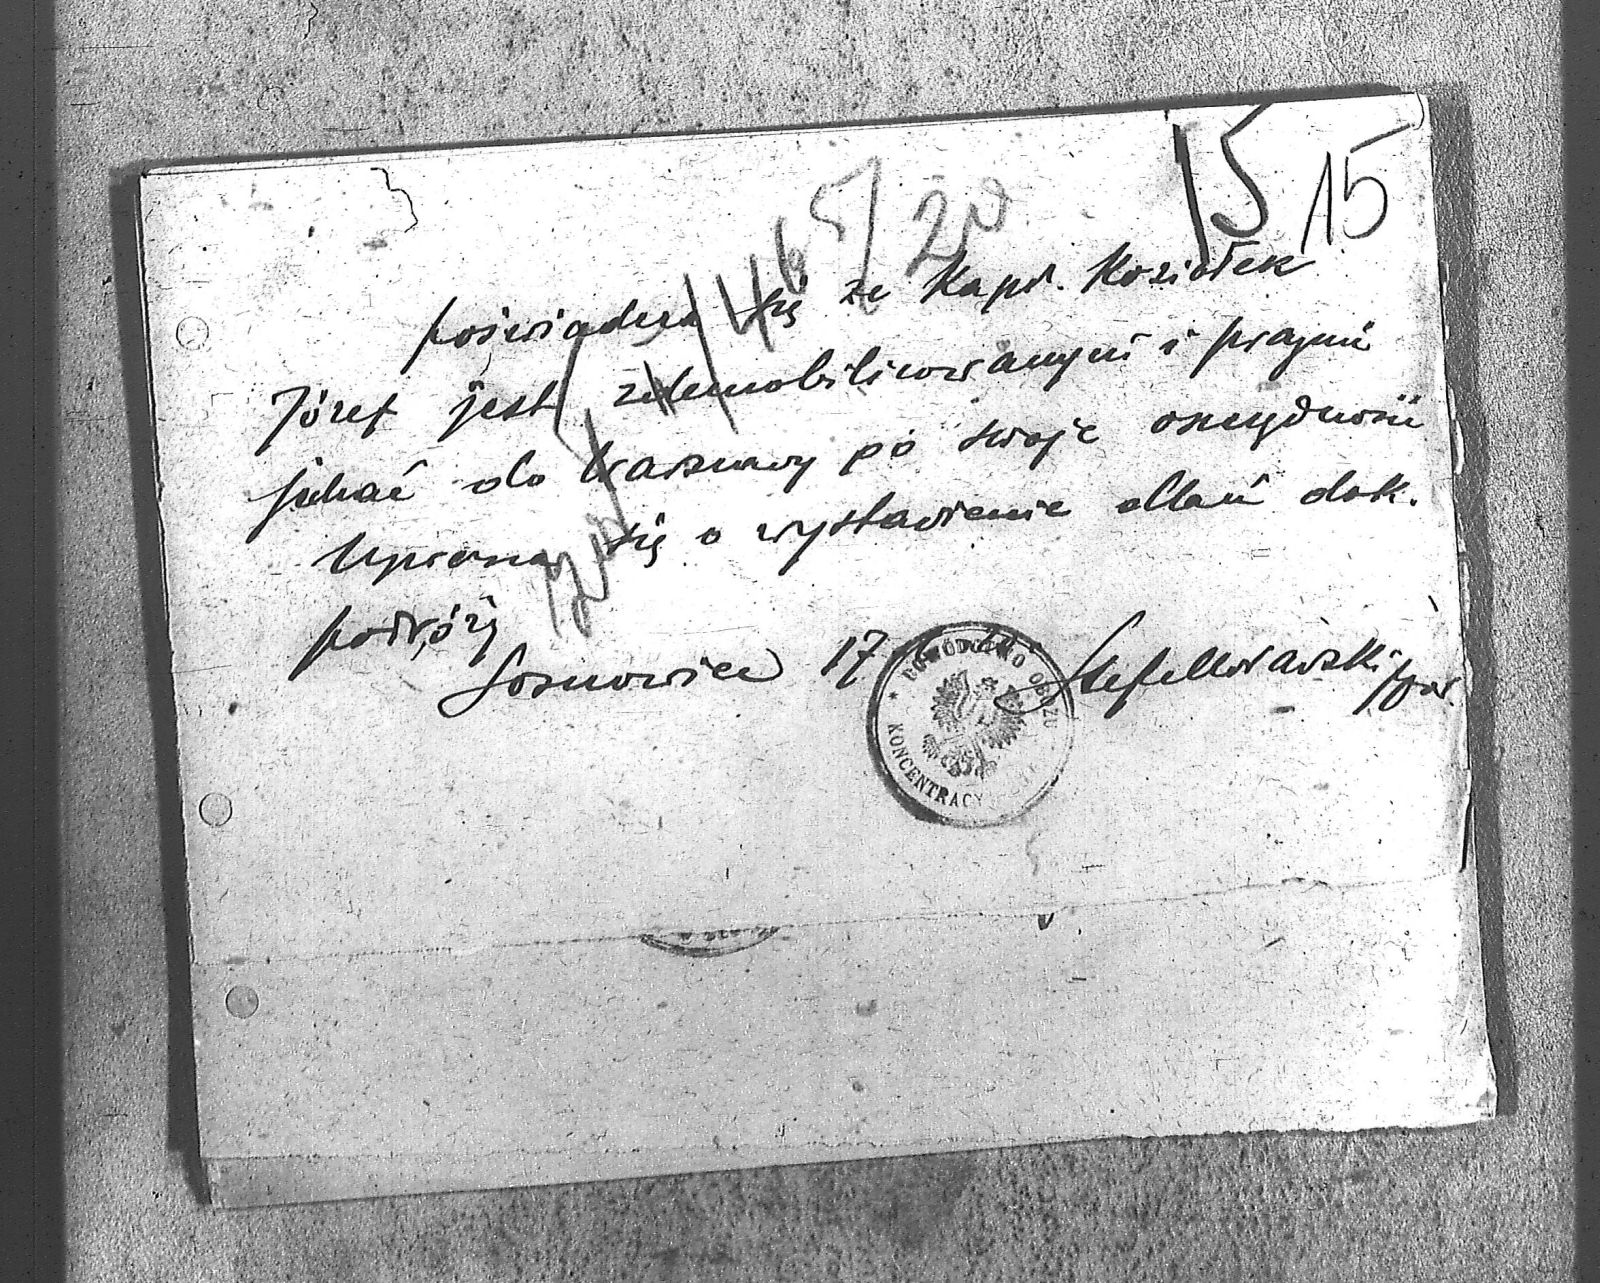 15 15
65/20
poświadcza się że Kapr. Koziołek
Józef jest zdemobilizowanym i pragnie
jechać do Warszawy po swoje oszczędności
Uprasza się o wystawienie dlań dok.
podróży
Sosnowiec 17
Stef Morawski ppor.
DOWÓDZTWO OBOZU
KONCENTRACY